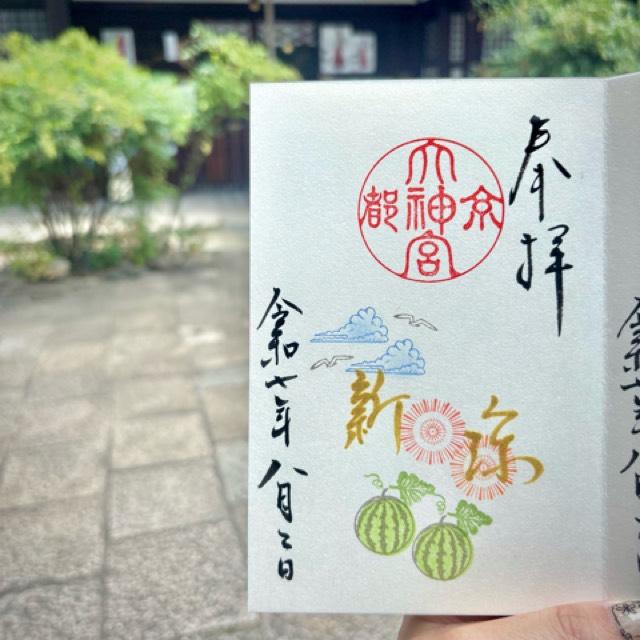 奉拝
京都
大神宮
新涼
令和七年八月二日